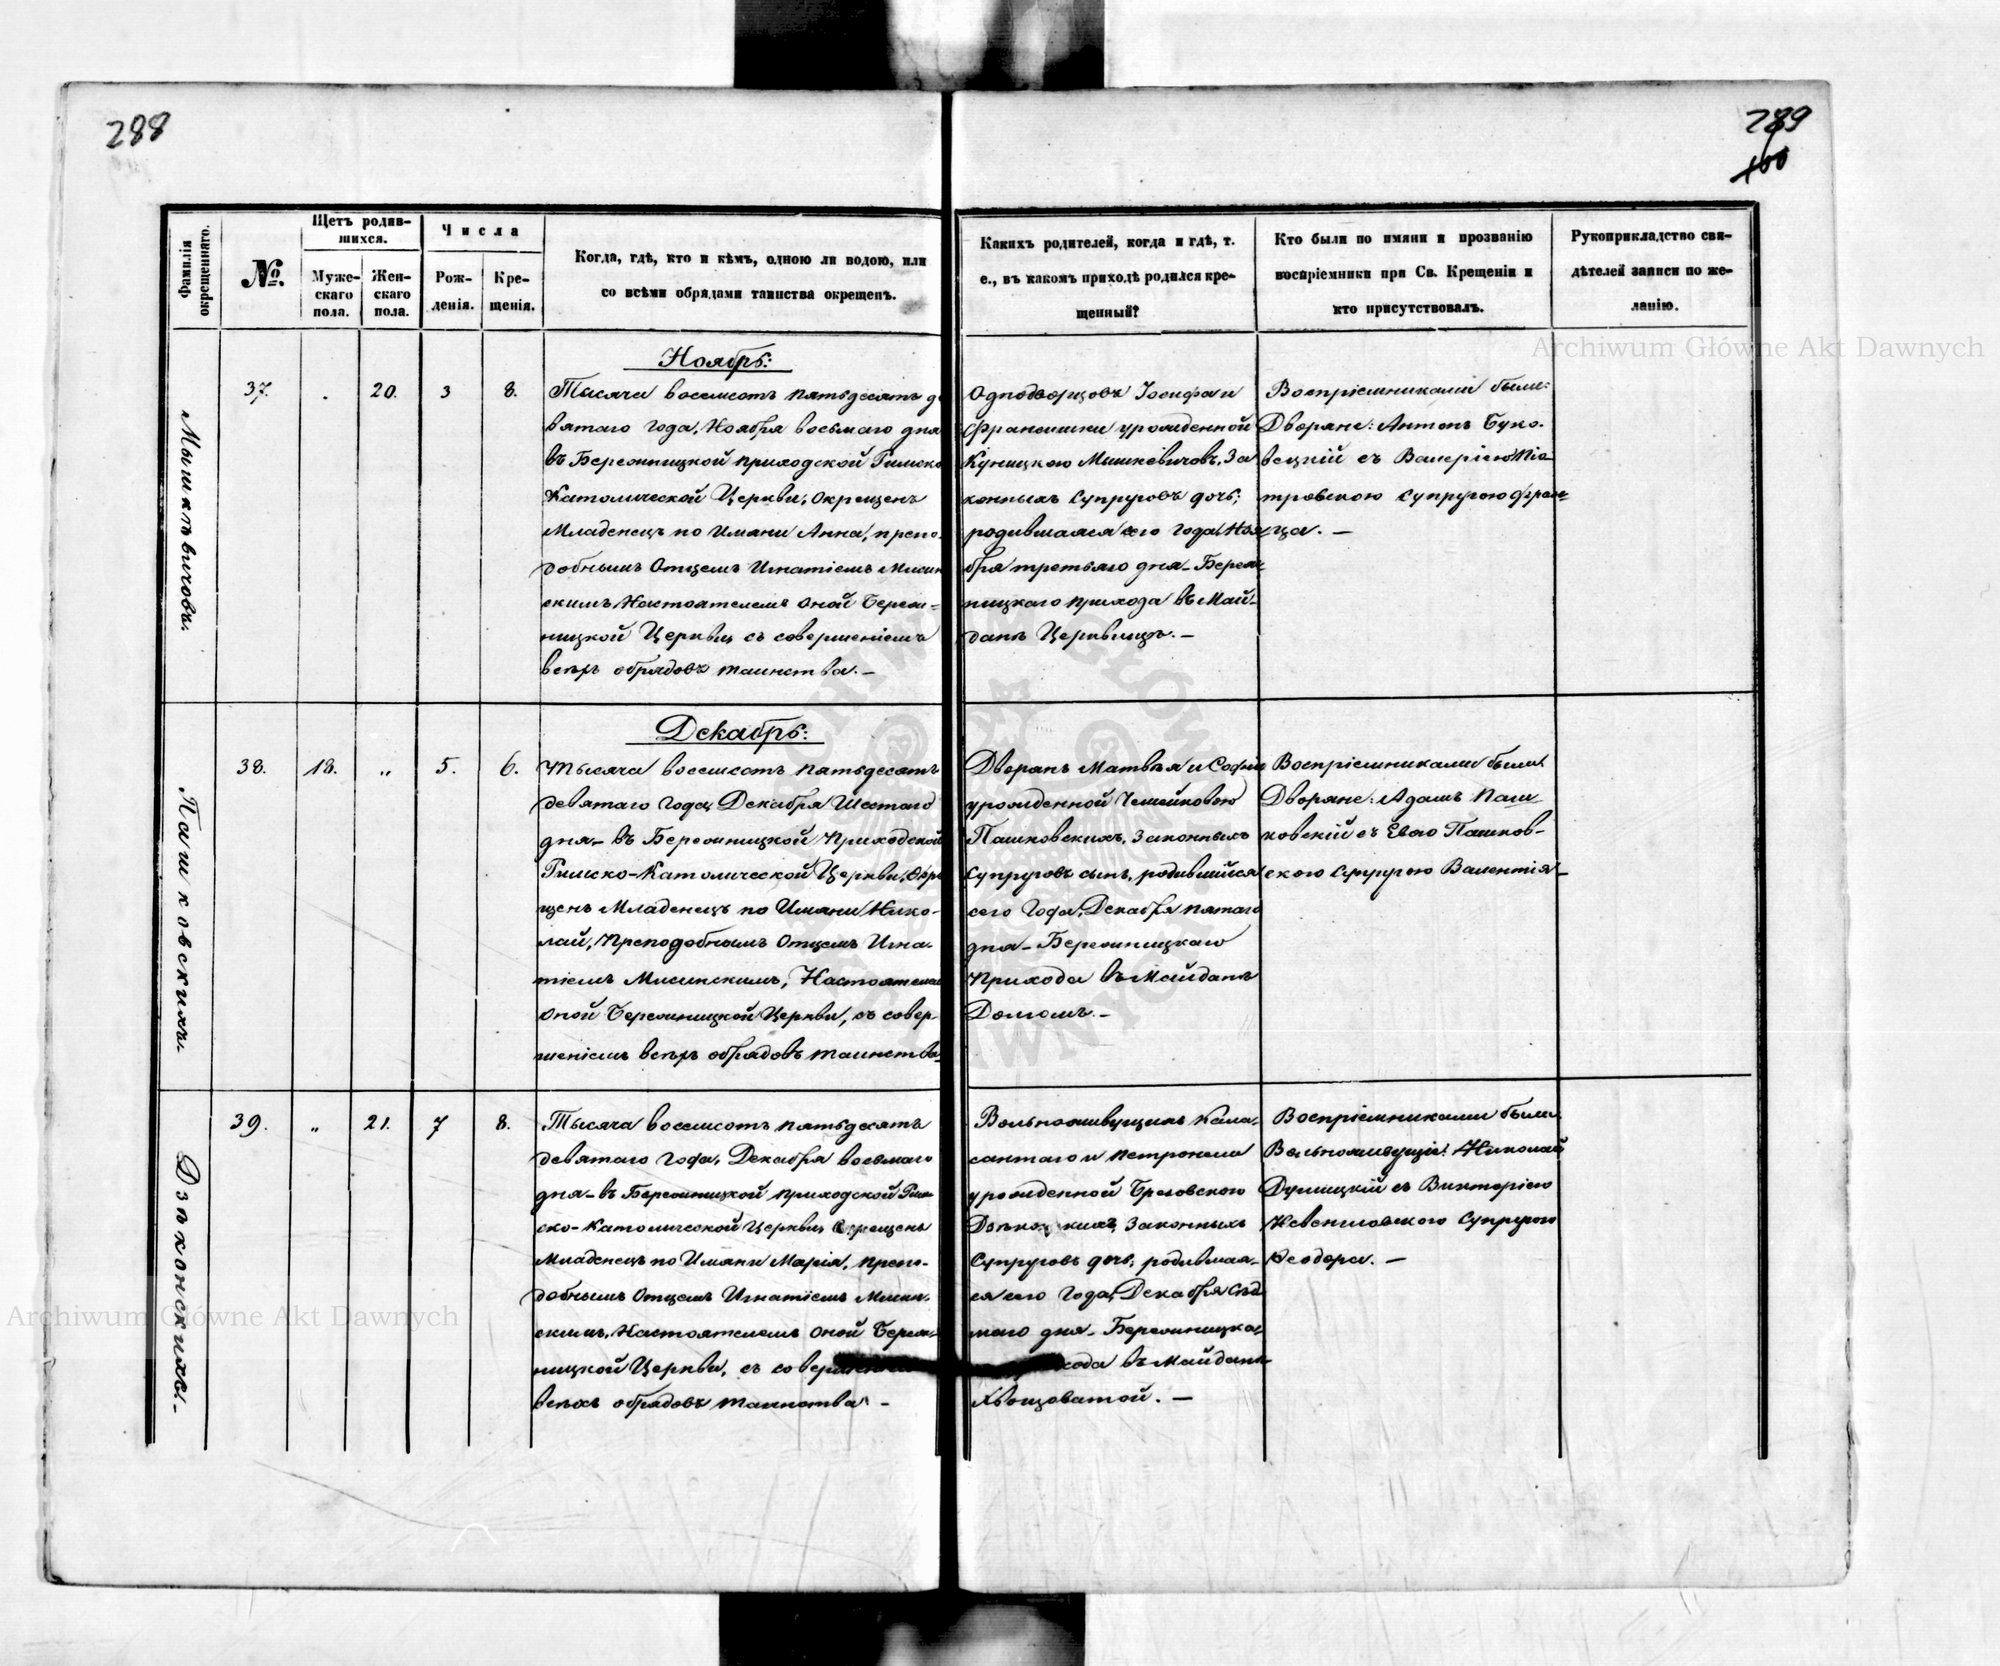 288
289
100
Фамилія окрещеннаго.
№.
Щетъ родив-
шихся.
Муже-
скаго
пола.
Жен-
скаго
пола.
Числа
Рож-
денія.
Кре-
щенія.
Когда, гдѣ, кто и кѣмъ, одною ли водою, или
со всѣми обрядами таинства окрещенъ.
Каких родителей, когда и гдѣ, т.
е., въ какомъ приходѣ родился кре-
щенный?
Кто были по имяни и прозванію
воспріемники при Св. Крещеніи и
кто присутствовалъ.
Рукоприкладство сви-
дѣтелей записи по же-
ланію.
Archiwum Główne Akt Dawnych
Мышкѣвичовъ.
37.
.
20.
3
8.
Ноябрь:
Тысяча восемсотъ пятьдесятъ де
вятаго года, Ноября восьмаго дня
въ Бересницкой приходской Римско
Католической Церкви, окрещенъ
Младенецъ по Имяни Анна, препо-
добнымъ Отцемъ Игнатіемъ Мисин
скимъ Настоятелемъ оной Бересн-
ницкой Церкви съ совершеніемъ
всѣхъ обрядовъ таинства.—
Однодворцовъ Іосифа и
Франсишки урожденной
Куницкою Мышкевичовъ, За
конныхъ Супруговъ дочь;
родившаяся сего года Ноя
бря третьяго дня_ Бересн
ницкаго прихода въ Май-
данѣ Церквищѣ.—
Воспріемниками были:
Дворяне: Антонъ Буко-
вецкій съ Валеріею Піо
тровскою Супругою Фран-
ца.—
Пашковскихъ.
38.
18.
„
5.
6.
Декабрь:
Тысяча восемсотъ пятьдесятъ
девятаго года, Декабря Шестаго
дня_ въ Бересницкой Приходской
Римско-Католической Церкви, окре
щенъ Младенецъ по Имяни Нико-
лай, Преподобнымъ Отцемъ Игна-
тіемъ Мисинскимъ, Настоятелемъ
оной Бересницкой Церкви, съ совер-
шеніемъ всѣхъ обрядовъ таинства_
Дворянъ Матвѣя и Софіи
урожденной
Пашковскихъ, Законныхъ
Супруговъ сынъ, родившійся
сего Года, Декабря пятаго
дня_ Бересницкаго
Прихода въ Майданѣ
Долгомъ.—
Воспріемниками были
Дворяне: Адамъ Паш
ковскій съ Евою Пашков-
скою Супругою Валентія_
Дзѣконскихъ.-
39.
„
21.
7
8.
Тысяча восемсотъ пятьдесятъ
девятаго Года, Декабря восьмаго
дня_ въ Бересницкой приходской Рим
ско-Католической Церкви, Окрещенъ
Младенецъ по Имяни Марія, препо-
добнымъ Отцемъ Игнатіемъ Мисин-
скимъ, Настоятелемъ оной Бересн-
ницкой Церкви, съ совершеніе
всѣхъ обрядовъ таинства -
Вольноживущихъ Кала-
сантаго и Петронели
урожденной Бреговскою
Дзѣконскихъ, Законныхъ
Супруговъ дочь, родившая-
ся сего Года, Декабря Сед
маго дня_ Бересницка-
хода въ Майданѣ
Хвощоватой.—
Воспріемниками были
Вольноживущіе: Николай
Дулицкій съ Викторіею
Супругою
Феодора.—
Archiwum Główne Akt Dawnych